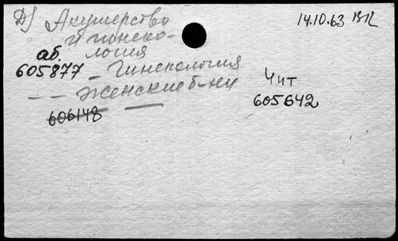 Д) Акушерство 14.10.63
и гинеко-
аб. логия
605877 – Гинекология
– – Женские б-ни Чит
606148 605642